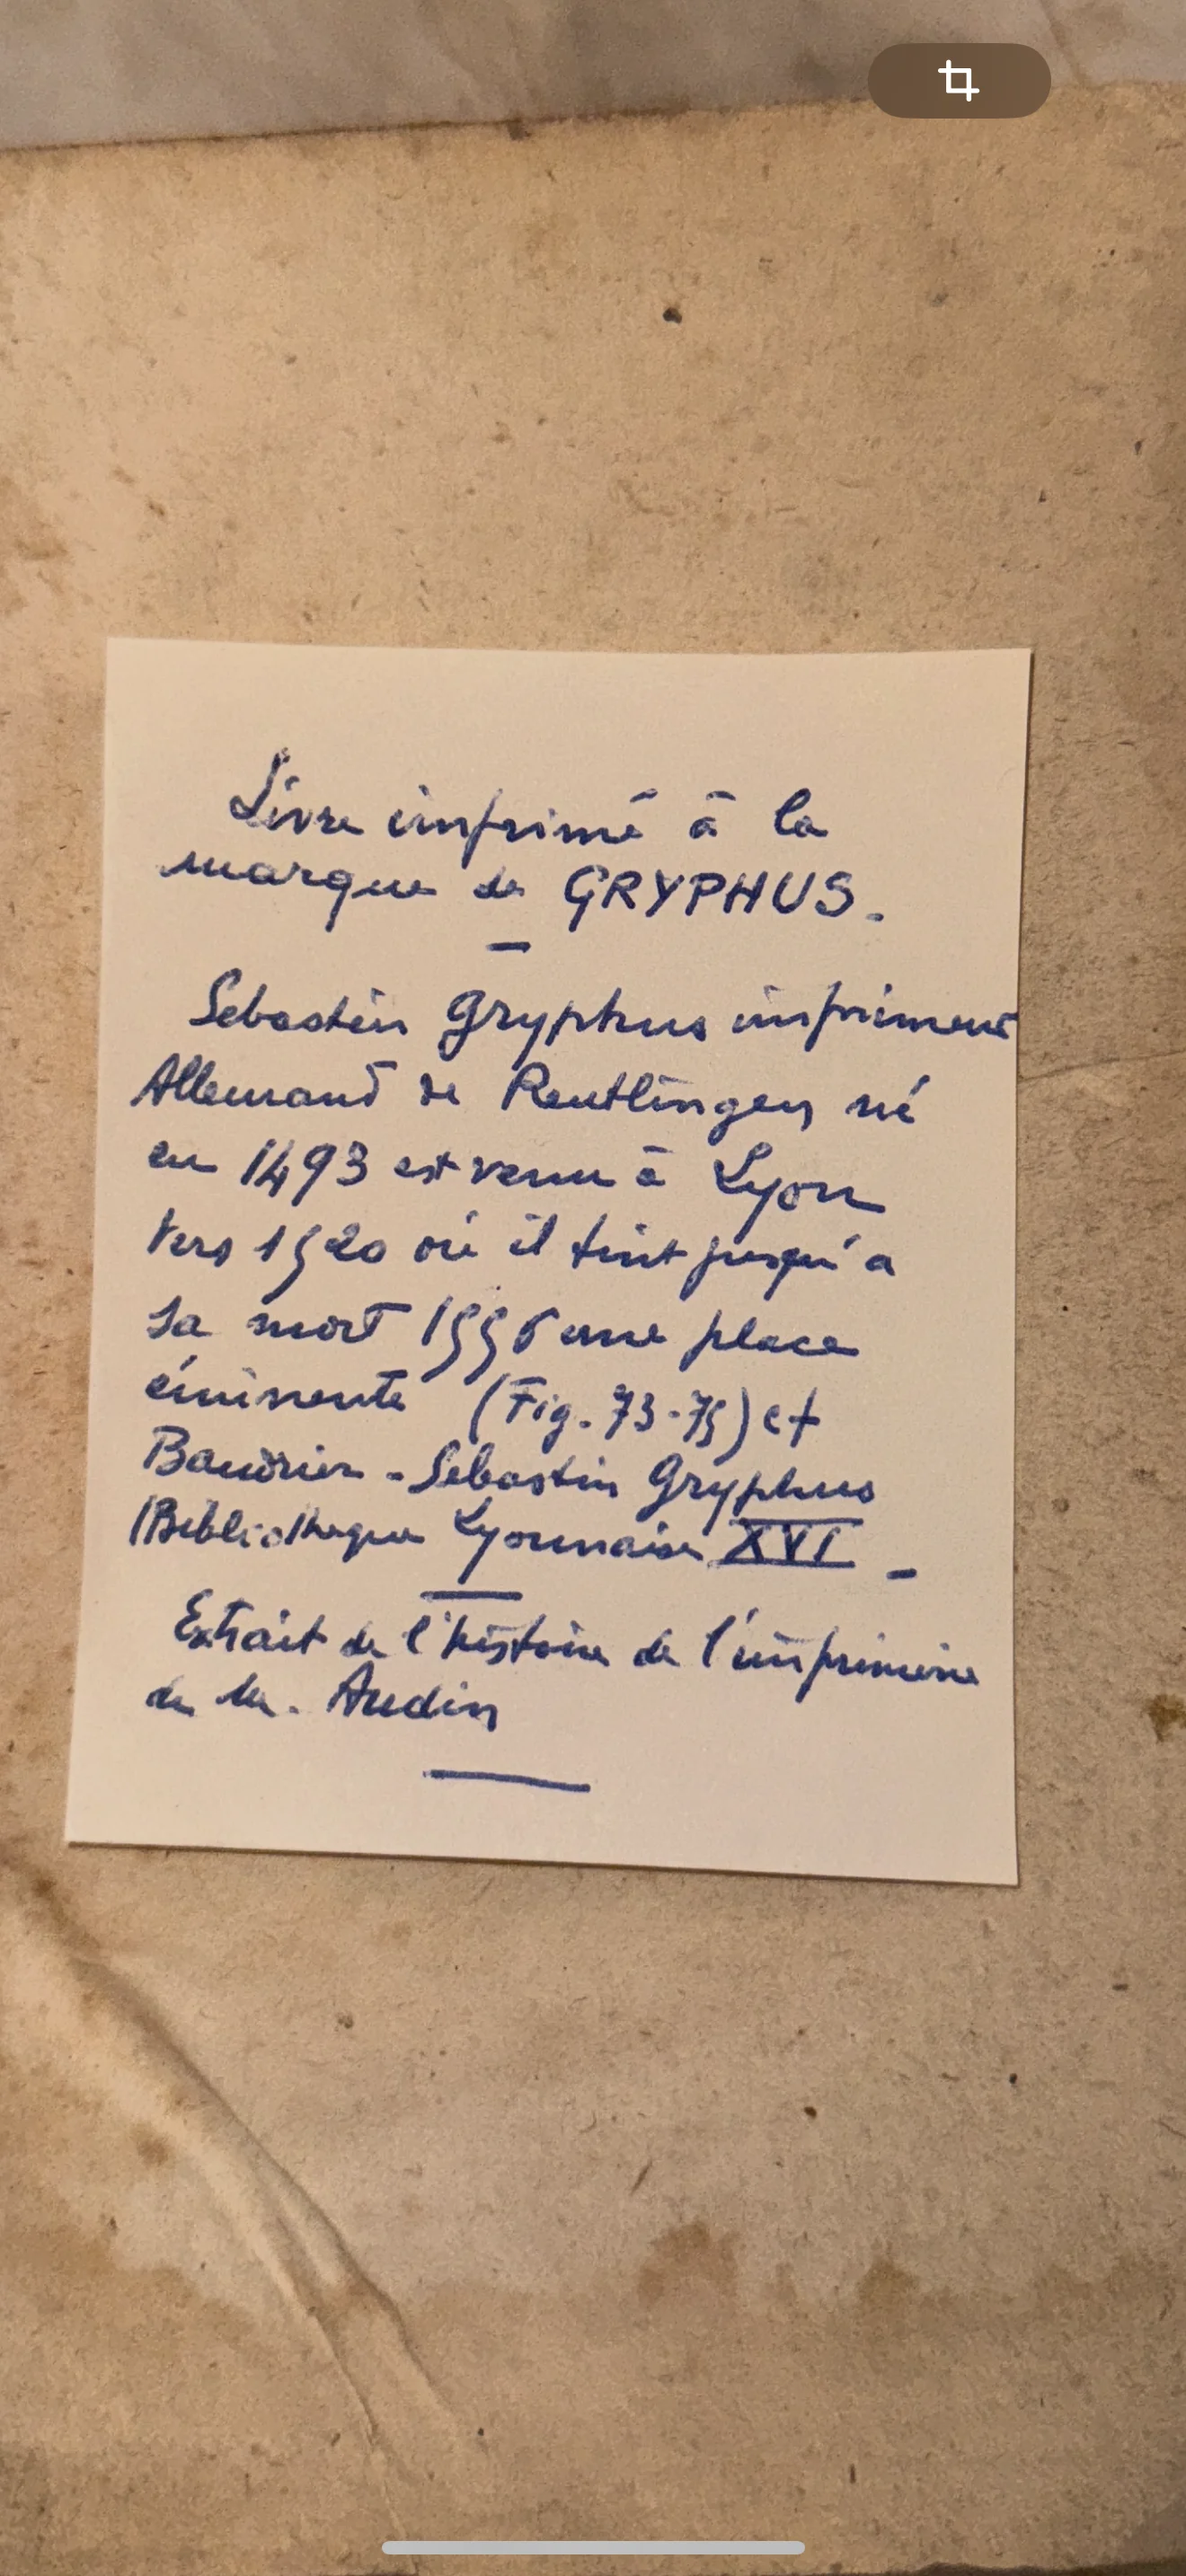 Livre imprimé à la
marque de GRYPHUS.
Sebastien Gryphus imprimeur
Allemand de Reutlingen né
en 1493 est venu à Lyon
vers 1520 où il tint jusqu'a
sa mort 1556 une place
éminente (Fig. 73-75) cf
Baudrier - Sebastien Gryphus
(Bibliotheque Lyonnaise XVI -
Extrait de l'histoire de l'imprimerie
de M. Audin